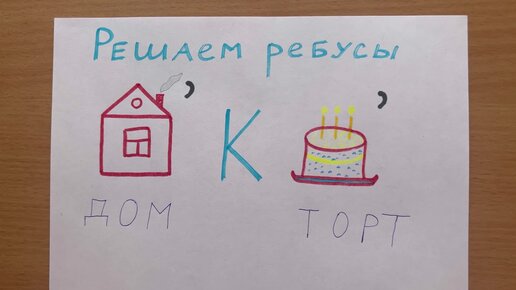 Решаем ребусы
’ К ’
ДОМ ТОРТ